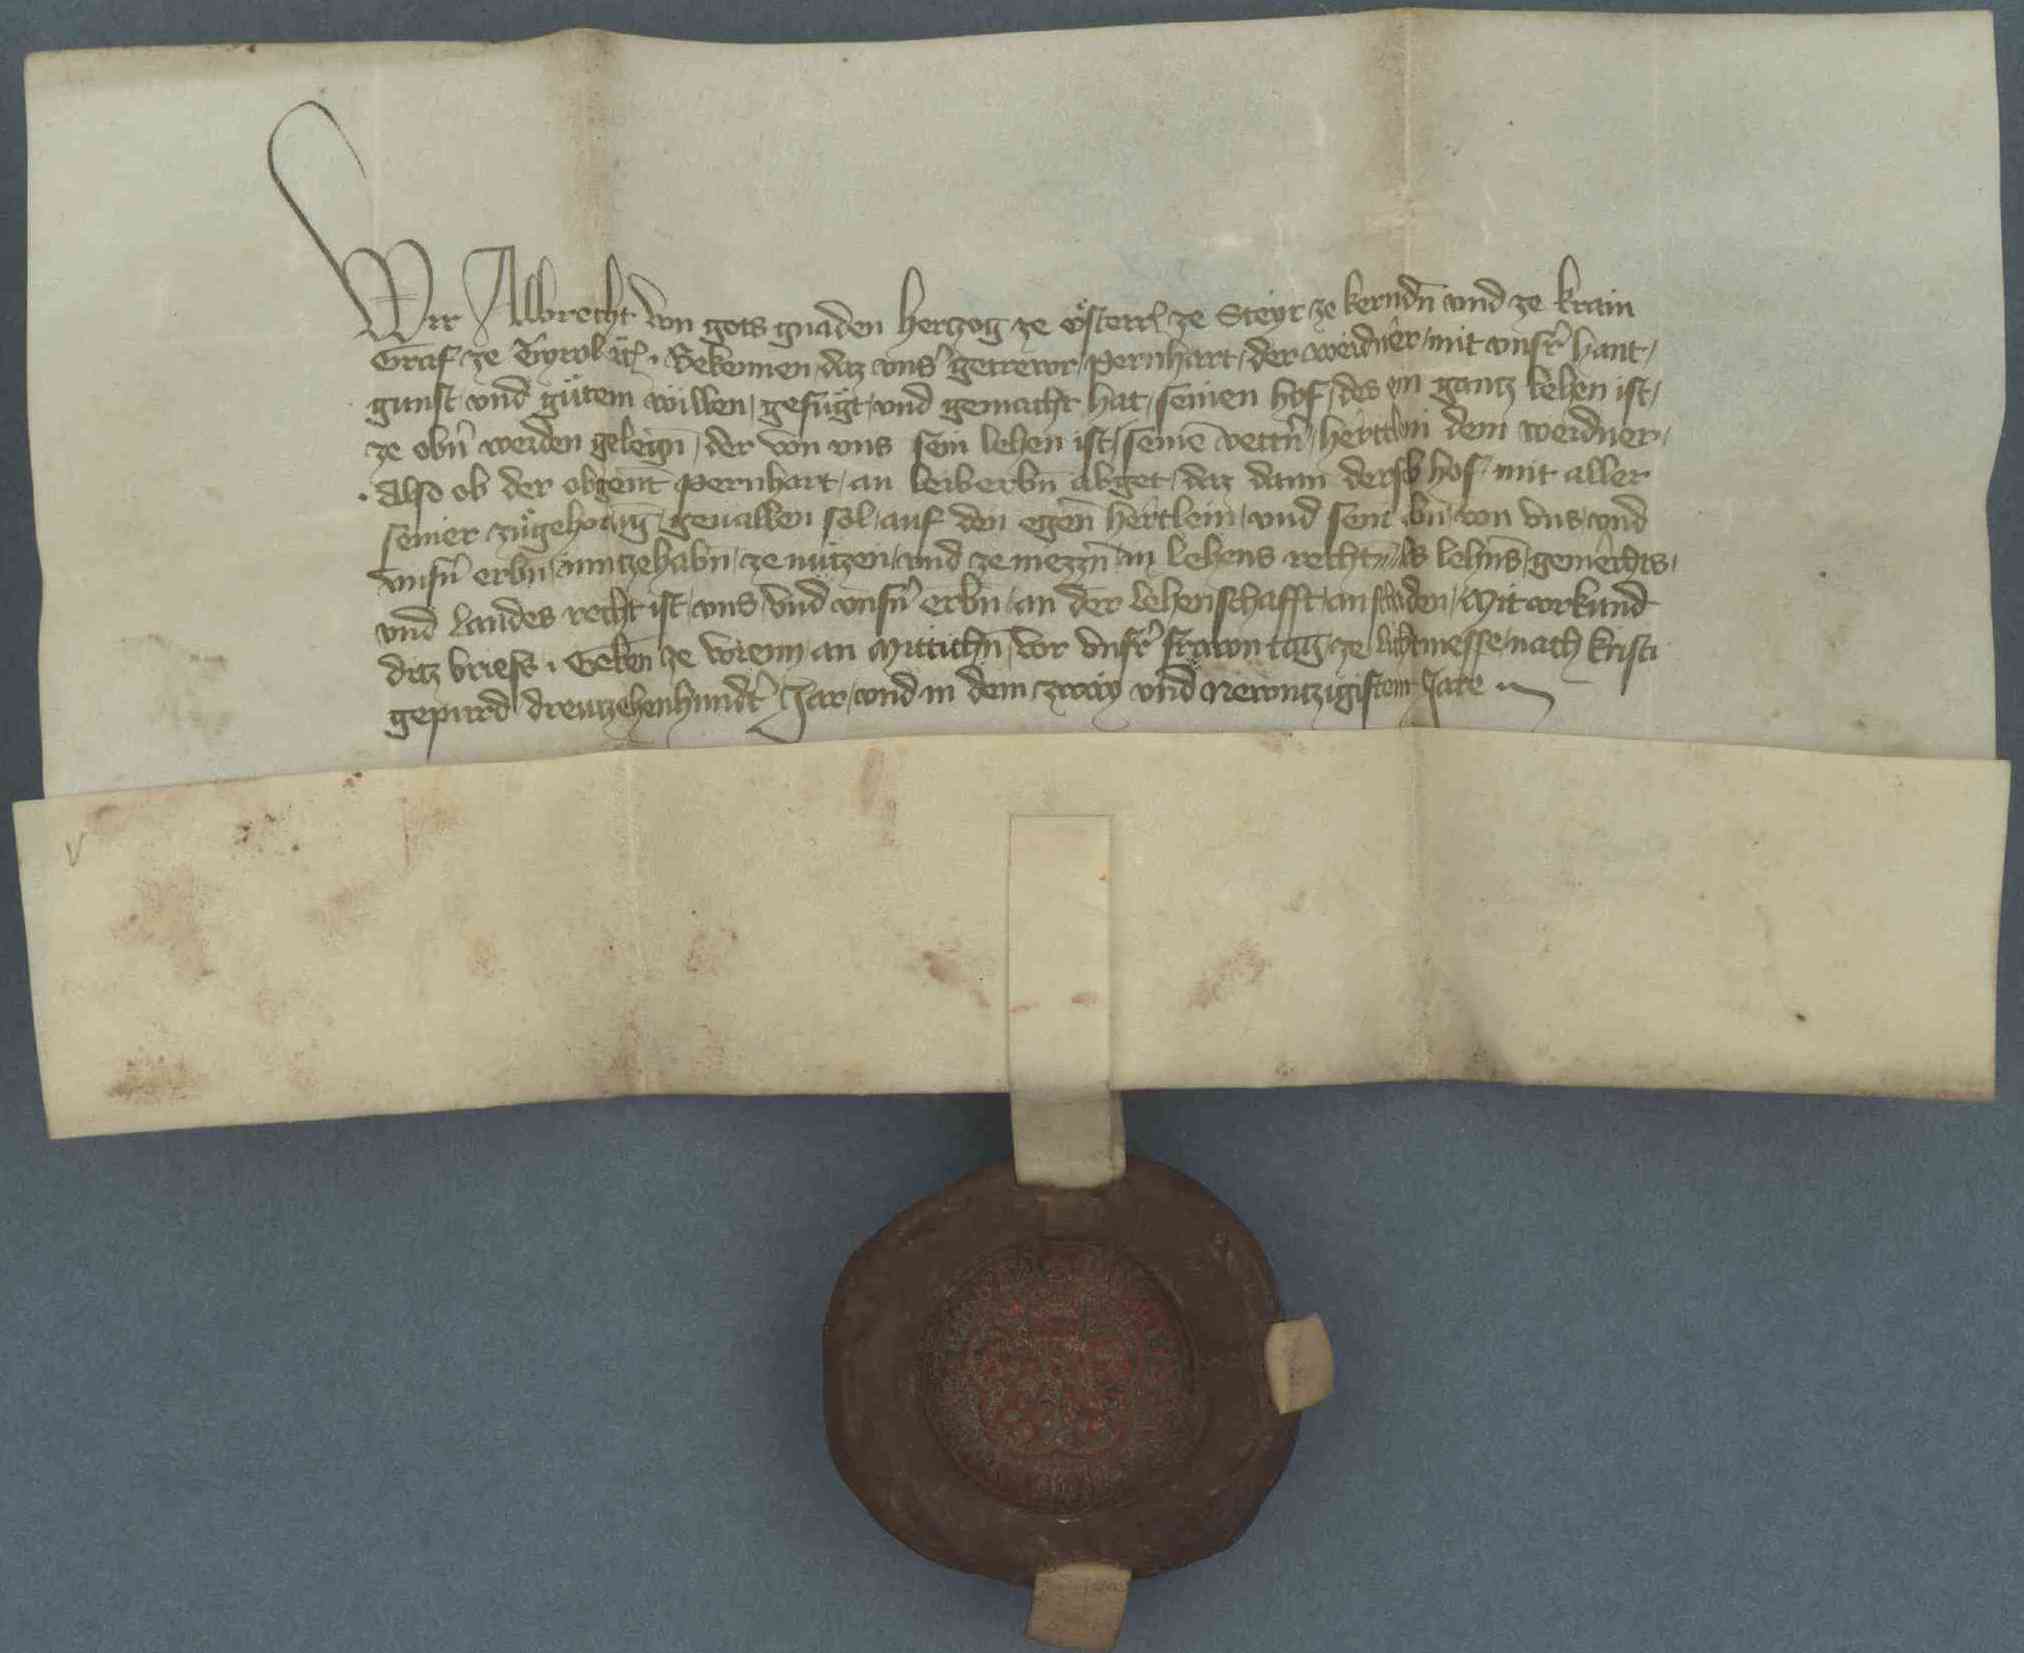 Wir Albrecht von gots gnaden Hertzog ze Österr̄ ze Steyr ze kernd̄n vnd ze krain
Graf ze Tyrol ꝛc̄. Bekennen daz vns̄ getrewr Pernhart der weidner mit vnsr̄ hant
gunst vnd gütem willen gefügt vnd gemacht hat seinen hof des ein gantz lehen ist
ze obn̄ weiden gelegn̄ der von vns sein lehen ist seinē vettn̄ Hertlein dem weidner
Also ob der obgent̄ Pernhart an leiberbn̄ abget daz dann dersb̄ hof mit aller
seiner zügehorūg geuallen sol auf den egen̄ Hertlein vnd sein erbn̄ von vns vnd
vnsn̄ erbn̄ Inntzehabn̄ ze nützen vnd ze niezzn̄ in lehens rechtn̄ als lehns̄ gemechts
vnd Landes recht ist vns vnd vnsn̄ erbn̄ an der lehenschafft an schaden Mit vrkund
ditz briefs. Gebn̄ ze wienn an Mittichn̄ vor vnsr̄ frawn tag ze liehtmesse nach kristi
gepurd dreutzehenhundt̄ Jar vnd in dem zway vnd Newntzigistem Jare